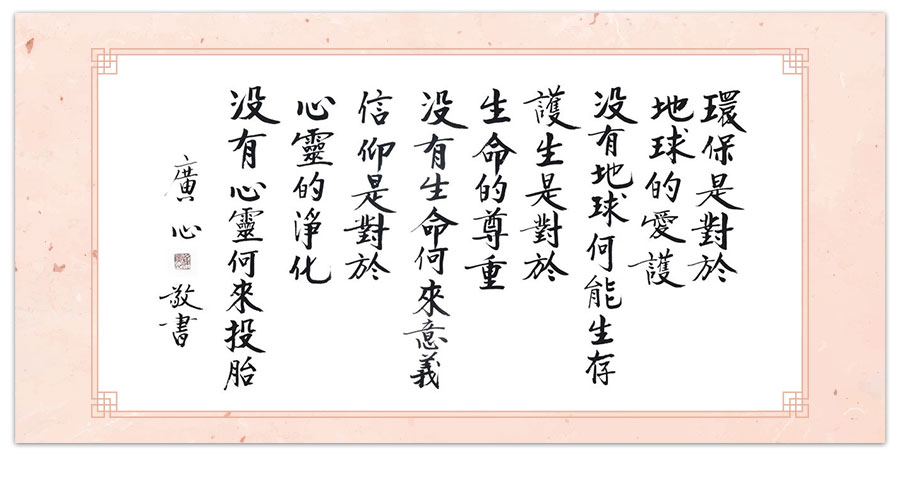 環保是對於
地球的愛護
没有地球何能生存
護生是對於
生命的尊重
没有生命何來意義
信仰是對於
心靈的淨化
没有心靈何來投胎
廣心
敬書